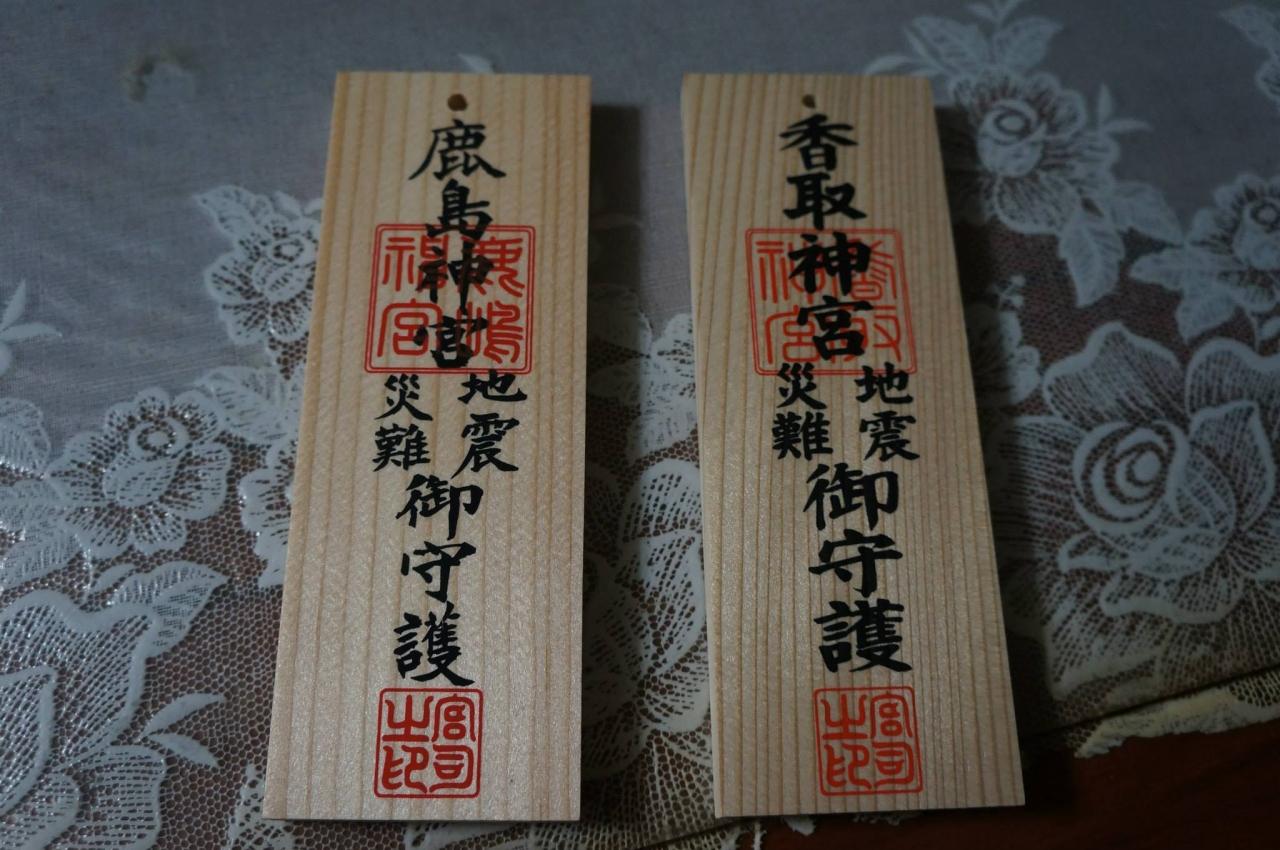 鹿島神宮
地震
災難
御守護
鹿嶋神宮
宮司之印
香取神宮
地震
災難
御守護
香取神宮
宮司之印